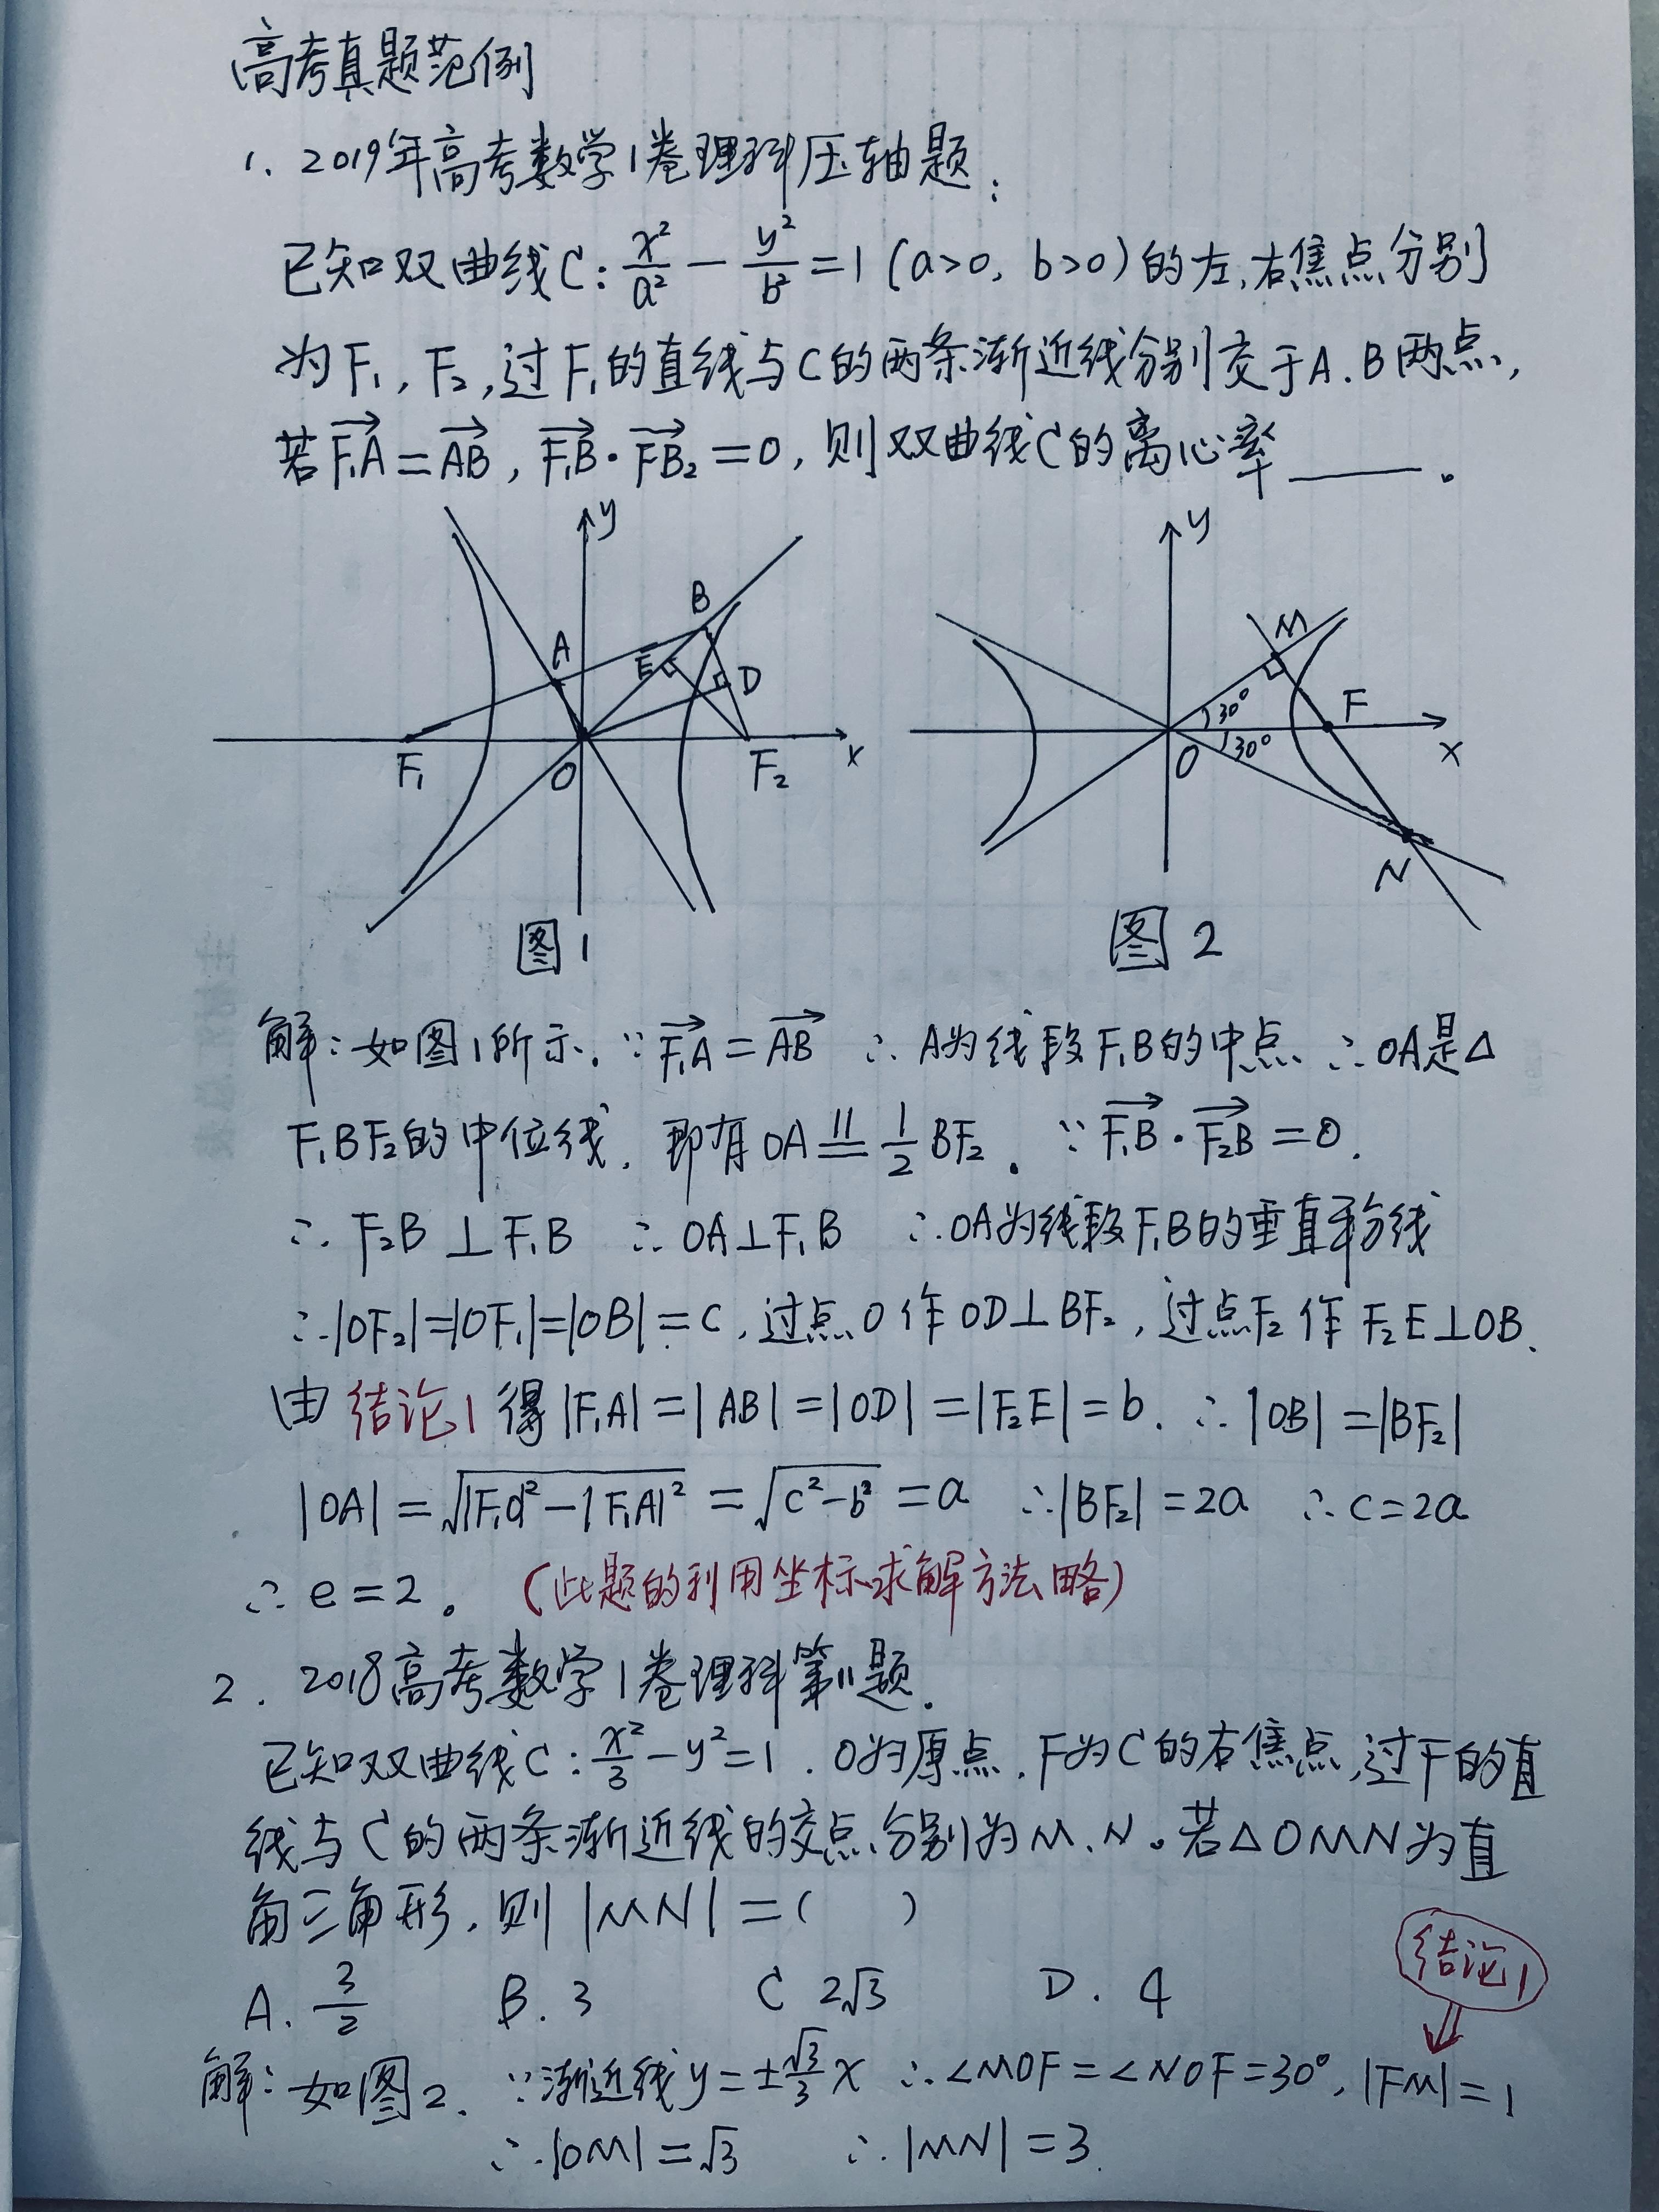 高考真题范例
1. 2019年高考数学1卷理科压轴题:
已知双曲线C: x²/a² - y²/b² = 1 (a>0, b>0) 的左,右焦点分别
为F₁, F₂,过F₁的直线与C的两条渐近线分别交于A.B两点,
若F₁A→=AB→, F₁B→·FB₂→=0, 则双曲线C的离心率____。
y
B
A
E
D
F₁
O
F₂
x
图1
y
M
30°
F
O
30°
x
N
图2
解:如图1所示. ∵F₁A→=AB→ ∴A为线段F₁B的中点 ∴OA是△
F₁BF₂的中位线, 即有OA∥= 1/2 BF₂. ∵F₁B→·F₂B→=0.
∴F₂B⊥F₁B ∴OA⊥F₁B ∴OA为线段F₁B的垂直平分线
∴|OF₂|=|OF₁|=|OB|=c, 过点O作OD⊥BF₂, 过点F₂作F₂E⊥OB.
由结论1得|F₁A|=|AB|=|OD|=|F₂E|=b. ∴|OB|=|BF₂|
|OA|=√(|F₁O|²-|F₁A|²)=√(c²-b²)=a ∴|BF₂|=2a ∴c=2a
∴e=2。 (此题的利用坐标求解方法略)
2. 2018高考数学1卷理科第11题.
已知双曲线C: x²/3 - y²=1. O为原点, F为C的右焦点,过F的直
线与C的两条渐近线的交点分别为M、N。若△OMN为直
角三角形, 则|MN|=( )
结论1
A. 3/2 B. 3 C 2√3 D. 4
解:如图2. ∵渐近线y=±√3/3 x ∴∠MOF=∠NOF=30°, |FM|=1
∴|OM|=√3 ∴|MN|=3.